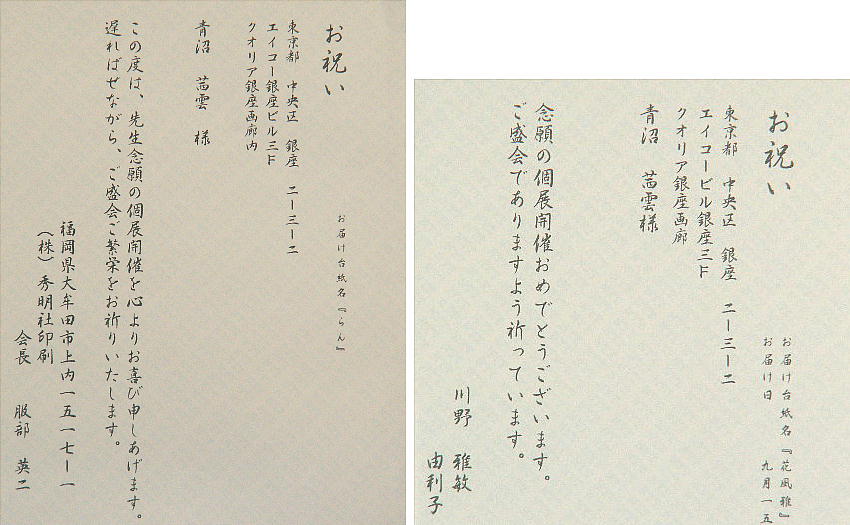 お祝い
お届け台紙名『らん』
東京都　中央区　銀座　二ー三ー二
エイコー銀座ビル三F
クオリア銀座画廊内
青沼　茜雲　様
この度は、先生念願の個展開催を心よりお喜び申しあげます。
遅ればせながら、ご盛会ご繁栄をお祈りいたします。
福岡県大牟田市上内一五一七ー一
（株）秀明社印刷
会長　服部　英二
お祝い
お届け台紙名『花風雅』
お届け日　九月一五
東京都　中央区　銀座　二ー三ー二
エイコービル銀座三F
クオリア銀座画廊
青沼　茜雲様
念願の個展開催おめでとうございます。
ご盛会でありますよう祈っています。
川野　雅敏
由利子